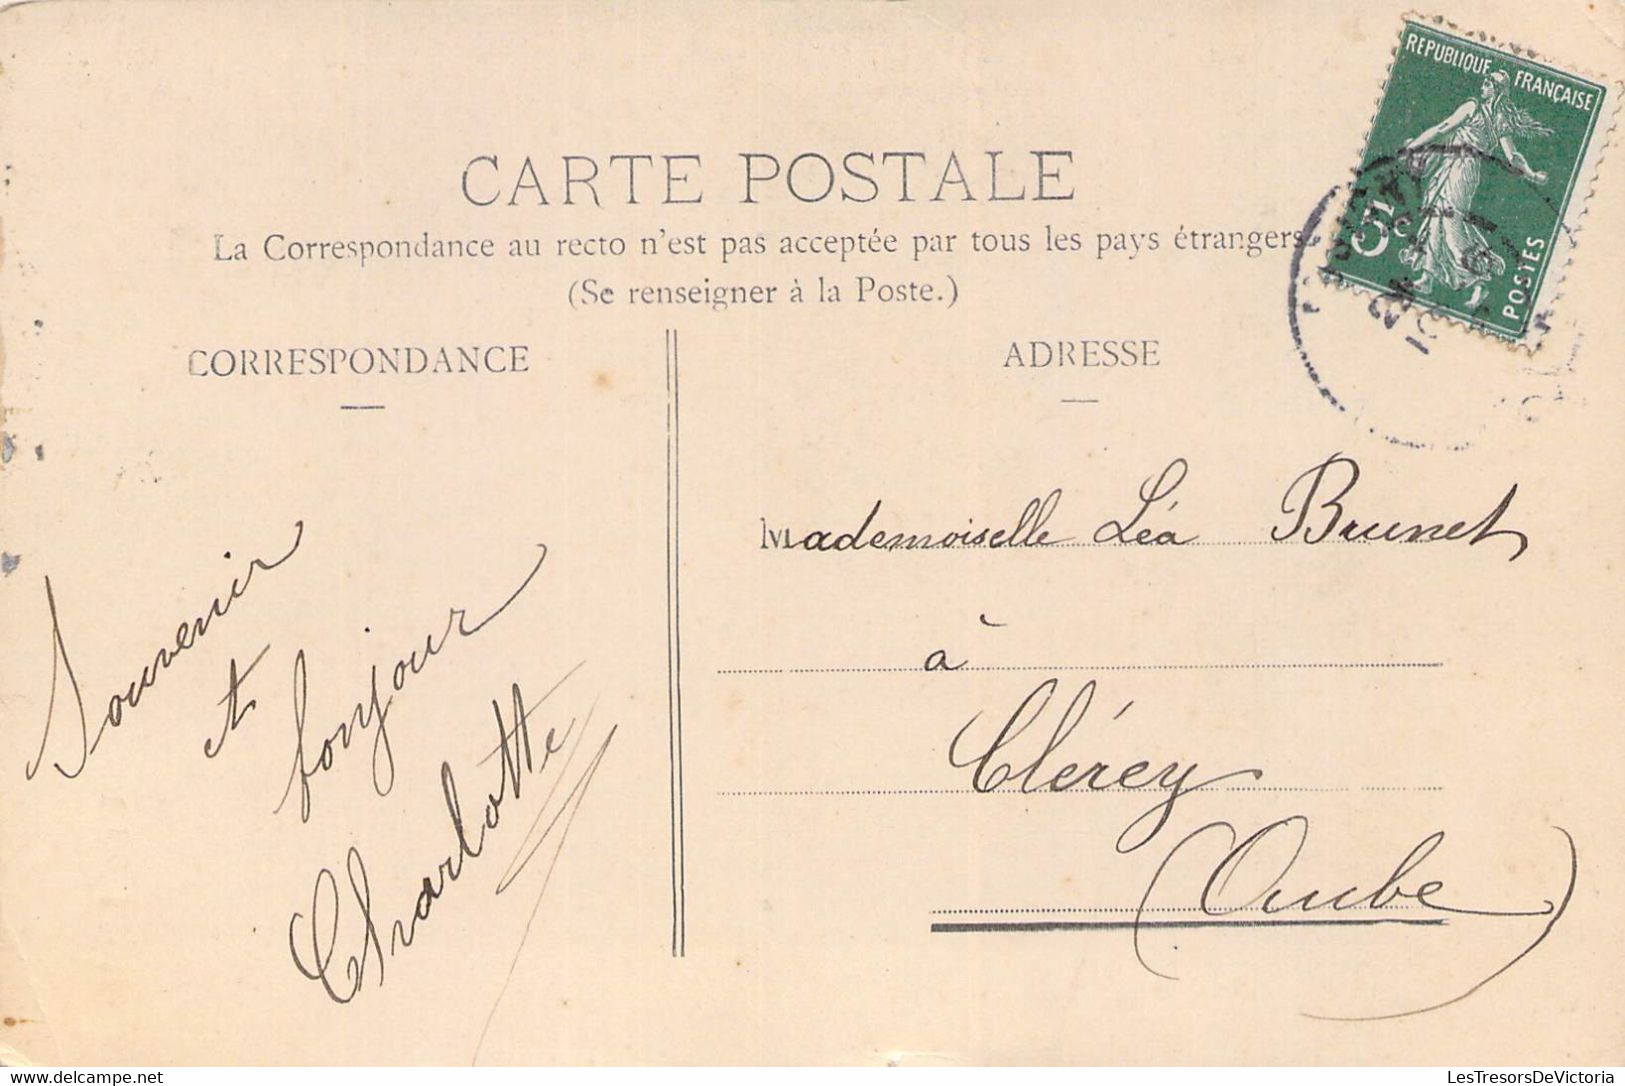 REPUBLIQUE FRANÇAISE
5c
POSTES
CARTE POSTALE
La Correspondance au recto n'est pas acceptée par tous les pays étrangers
(Se renseigner à la Poste.)
CORRESPONDANCE
ADRESSE
Souvenir
et
bonjour
Charlotte
Mademoiselle Léa Brunet
à
Clérey
(Aube)
www.delcampe.net
LesTresorsDeVictoria